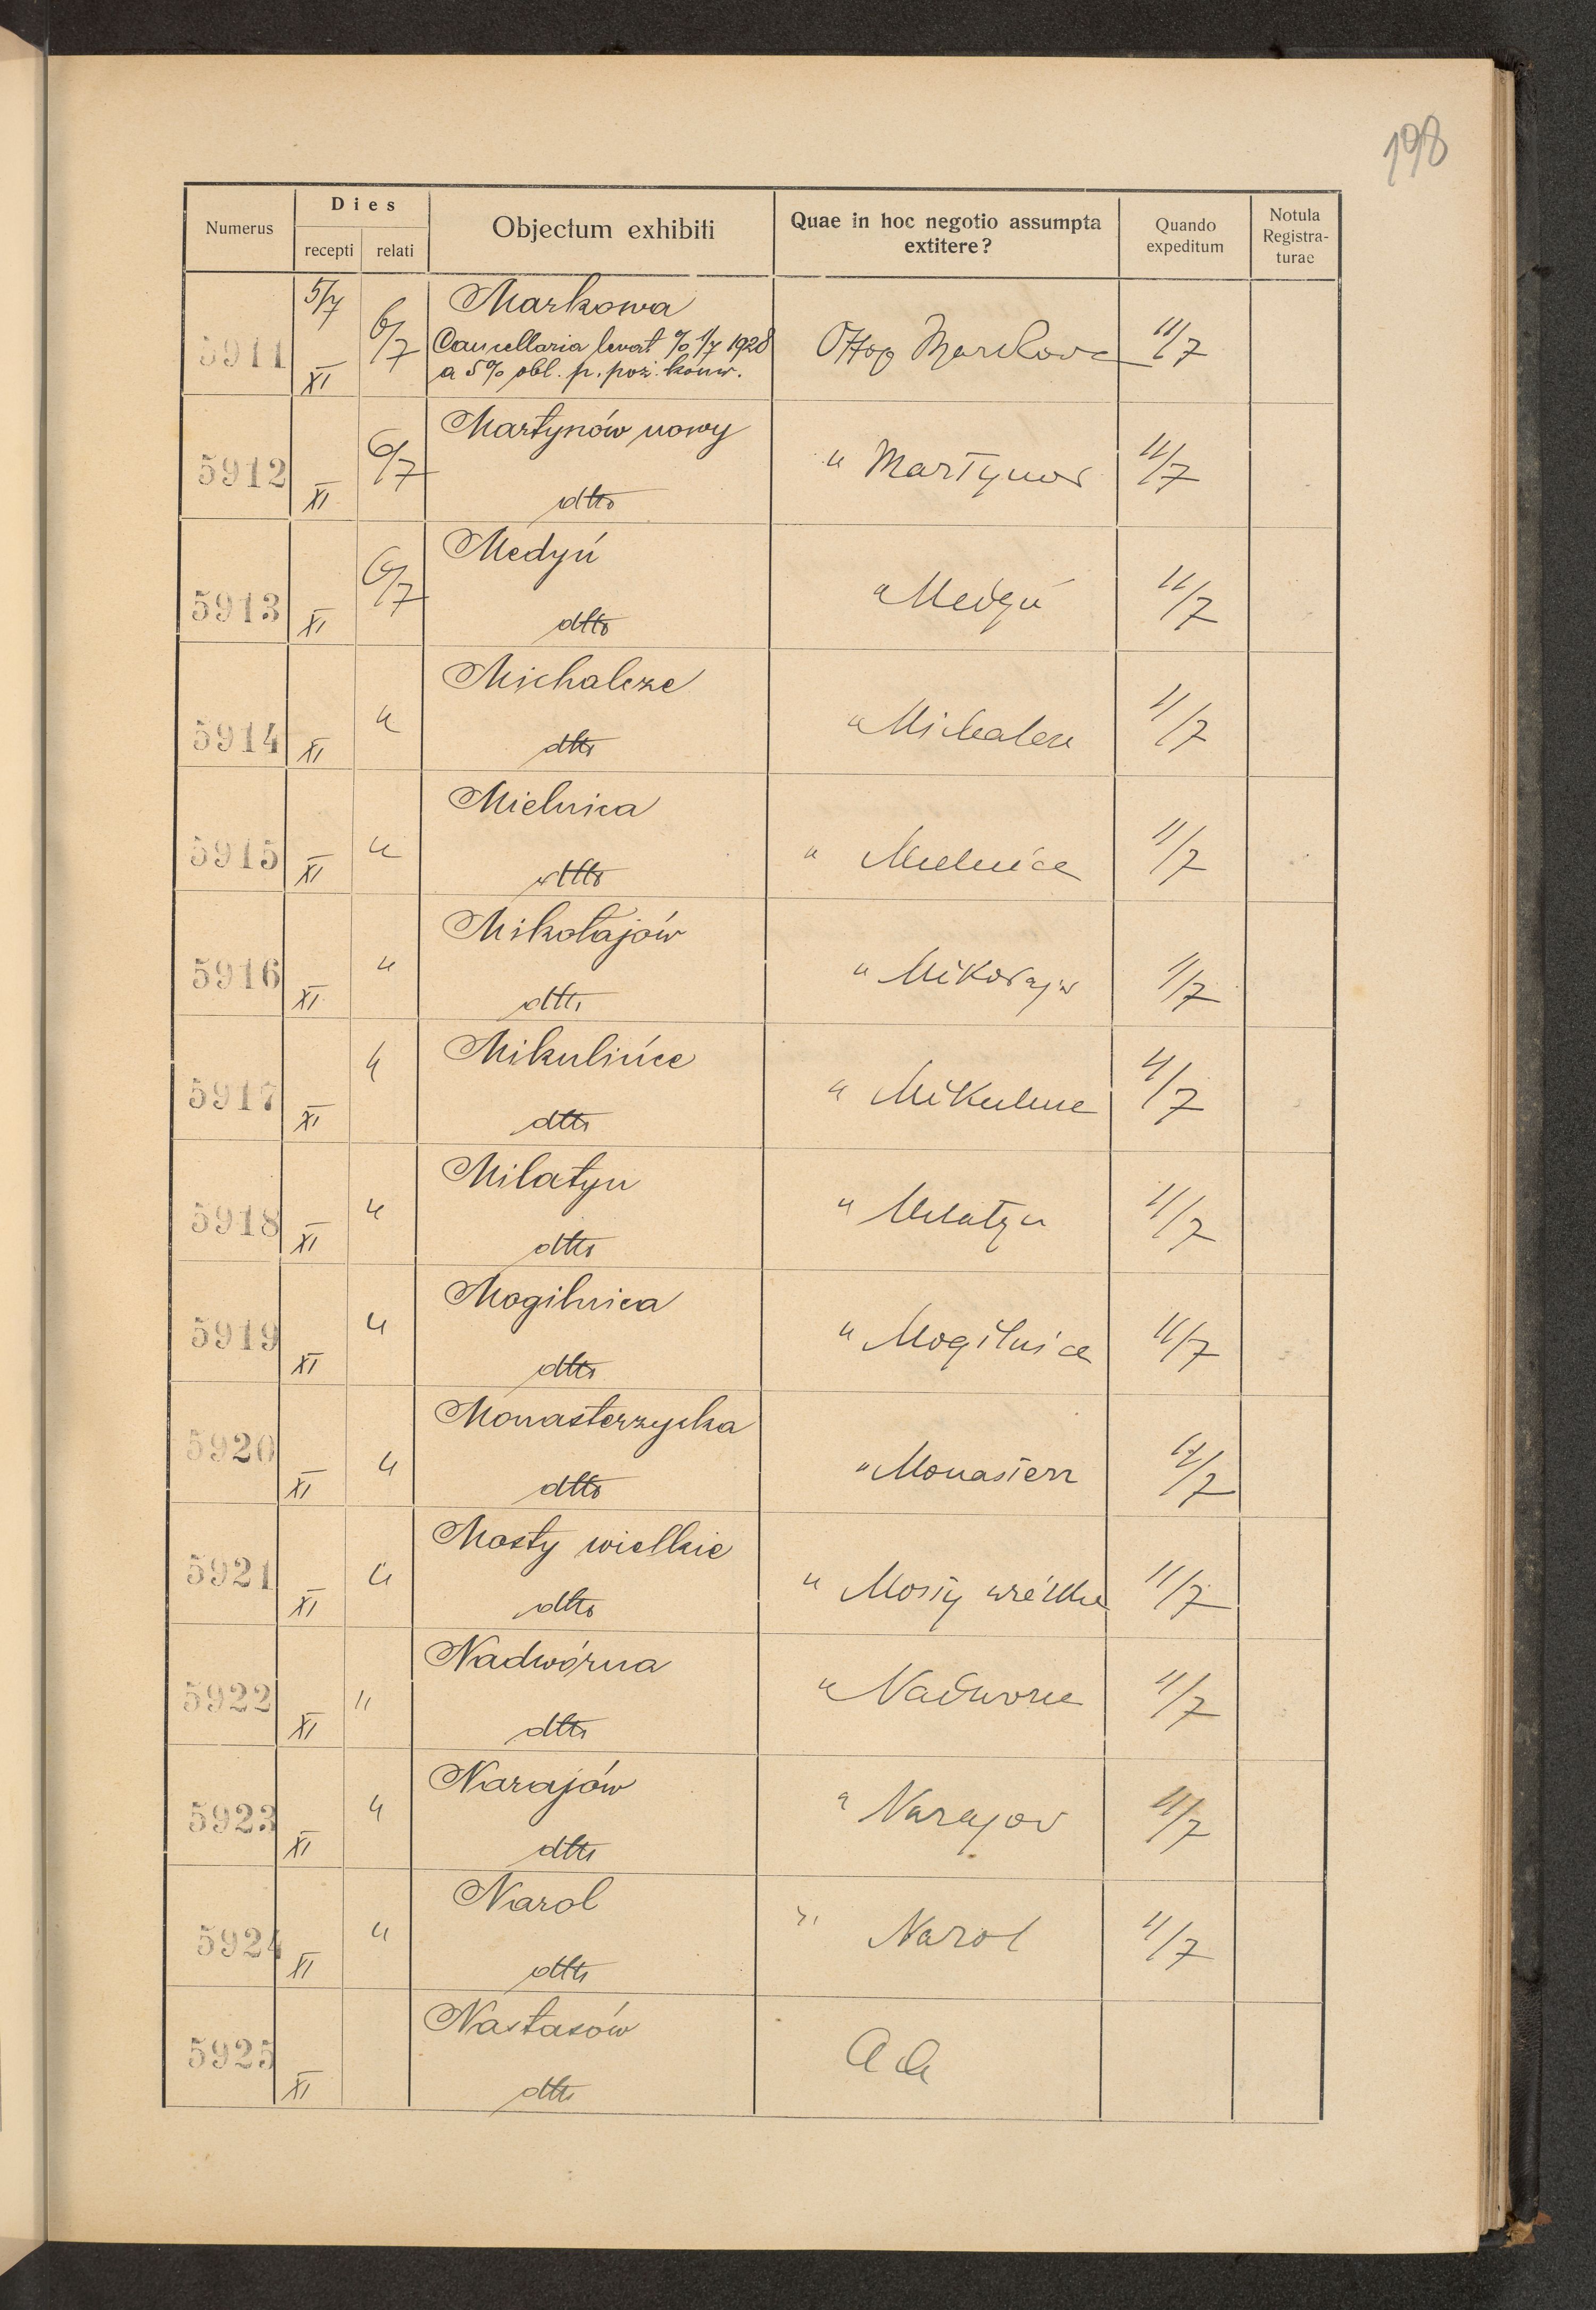 198
Numerus Dies recepti relati Objectum exhibiti Quae in hoc negotio assumpta extitere? Quando expeditum Notula Registra-turae
5911 5/7 XI 6/7 Markowa 11/7
Cancellaria levat % 1/7 1928
a 5% obl. p. poż. konw.
5912 XI 6/7 Martynów nowy dtto " Martynow 11/7
5913 XI 6/7 Medyń dtto " Medyń 11/7
5914 XI " Michalcze dtto " Michalcze 11/7
5915 XI " Mielnica dtto " Mielnica 11/7
5916 XI " Mikołajów dtto " Mikołajw 11/7
5917 XI " Mikulińce dtto " Mikulince 11/7
5918 XI " Milatyn dtto " Milatyn 11/7
5919 XI " Mogilnica dtto " Mogilnica 11/7
5920 XI " Monasterzyska dtto " Monasterz /7
5921 XI " Mosty wielkie dtto " Mosty wielkie 11/7
5922 XI " Nadwórna dtto " Nadworna 11/7
5923 XI " Narajów dtto " Narajow 11/7
5924 XI " Narol dtto " Narol 11/7
5925 XI Nastasów dtto